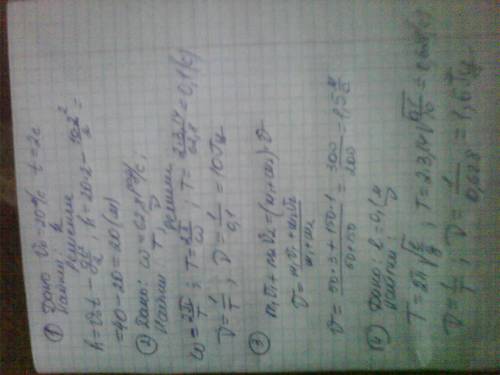 ① Дано: V₀ = 20 м/с t = 2с
Найти h
Решение
h = V₀t - gt²/2; h = 20·2 - 10·2²/2 =
= 40 - 20 = 20 (м)
② Дано: ω = 62,8 рад/с;
Найти: T, ν
Решение
ω = 2π/T; T = 2π/ω; T = 2·3,14/62,8 = 0,1 (с)
ν = 1/T; ν = 1/0,1 = 10 Гц
③ m₁V₁ + m₂V₂ = (m₁+m₂)·V
V = m₁V₁ + m₂V₂/m₁+m₂
V = 50·3 + 150·1/50+150 = 300/200 = 1,5 м/с
④ Дано: l = 0,1 м
Найти ν
T = 2π√l/g; T = 2·3,14√0,1/10 = 0,628 (с)
ν = 1/T; ν = 1/0,628 = 1,6 Гц